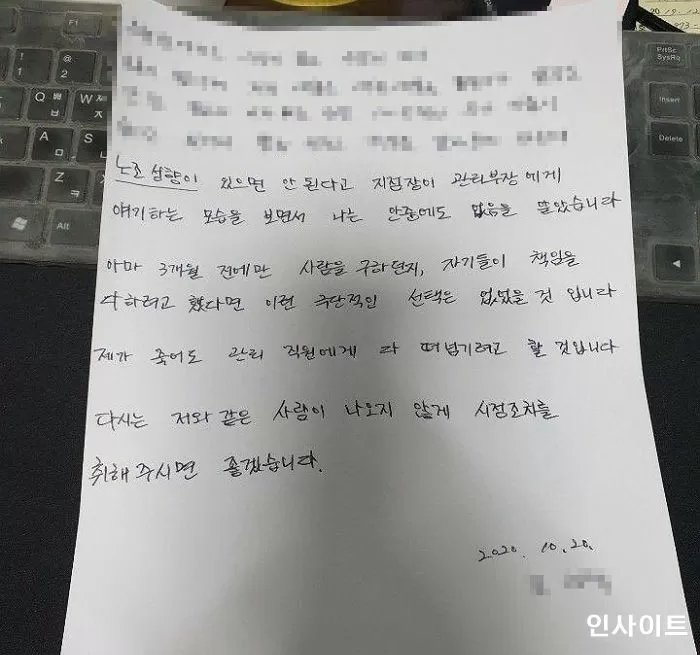 F1
PrtSc
SysRq
!
1
@
2
Insert
Q ㅃ
ㅂ
W ㅉ
ㅈ
Delete
A
ㅁ
Z
ㅋ
Alt
노조 성향이 있으면 안 된다고 지점장이 관리부장에게
얘기하는 모습을 보면서 나는 안준에도 없음을 알았습니다
아마 3개월 전에만 사람을 구하던지, 자기들이 책임을
다하려고 했다면 이런 극단적인 선택은 없었을 것 입니다
제가 죽어도 관리 직원에게 다 떠넘기려고 할 것입니다
다시는 저와 같은 사람이 나오지 않게 시정조치를
취해주시면 좋겠습니다.
2020. 10. 20.
인사이트